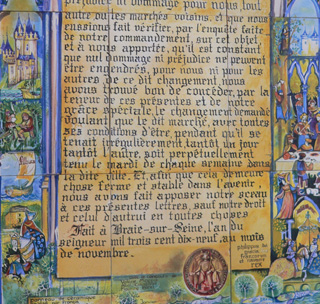 préjudice ni dommage pour nous, tout
autre ou les marchés voisins, et que nous
en ssions fait vérifier, par l'enquête faite
de notre commandement, sur cet objet,
et à nous apportée, qu'il est constant
que nul dommage ni préjudice ne peuvent
être engendrés, pour nous ni pour les
autres de ce dit changement, nous
avons trouvé bon de concéder, par la
teneur de ces présentes et de notre
grâce spéciale, le changement demandé
voulant que le dit marché, avec toutes
ses conditions d'être, pendant qu'il se
tenait irrégulièrement, tantôt un jour
tantôt l'autre, soit perpétuellement
tenu le mardi de chaque semaine dans
la dite ville. Et, afin que cela demeure
chose ferme et stable dans l'avenir,
nous avons fait apposer notre sceau
à ces présentes lettres, sauf notre droit
et celui d'autrui en toutes choses
Fait à Braie-sur-Seine, l'an du
seigneur mil trois cent dix-neuf, au mois
de novembre.
philippus dei
gratia
francorum
et navarre
rex